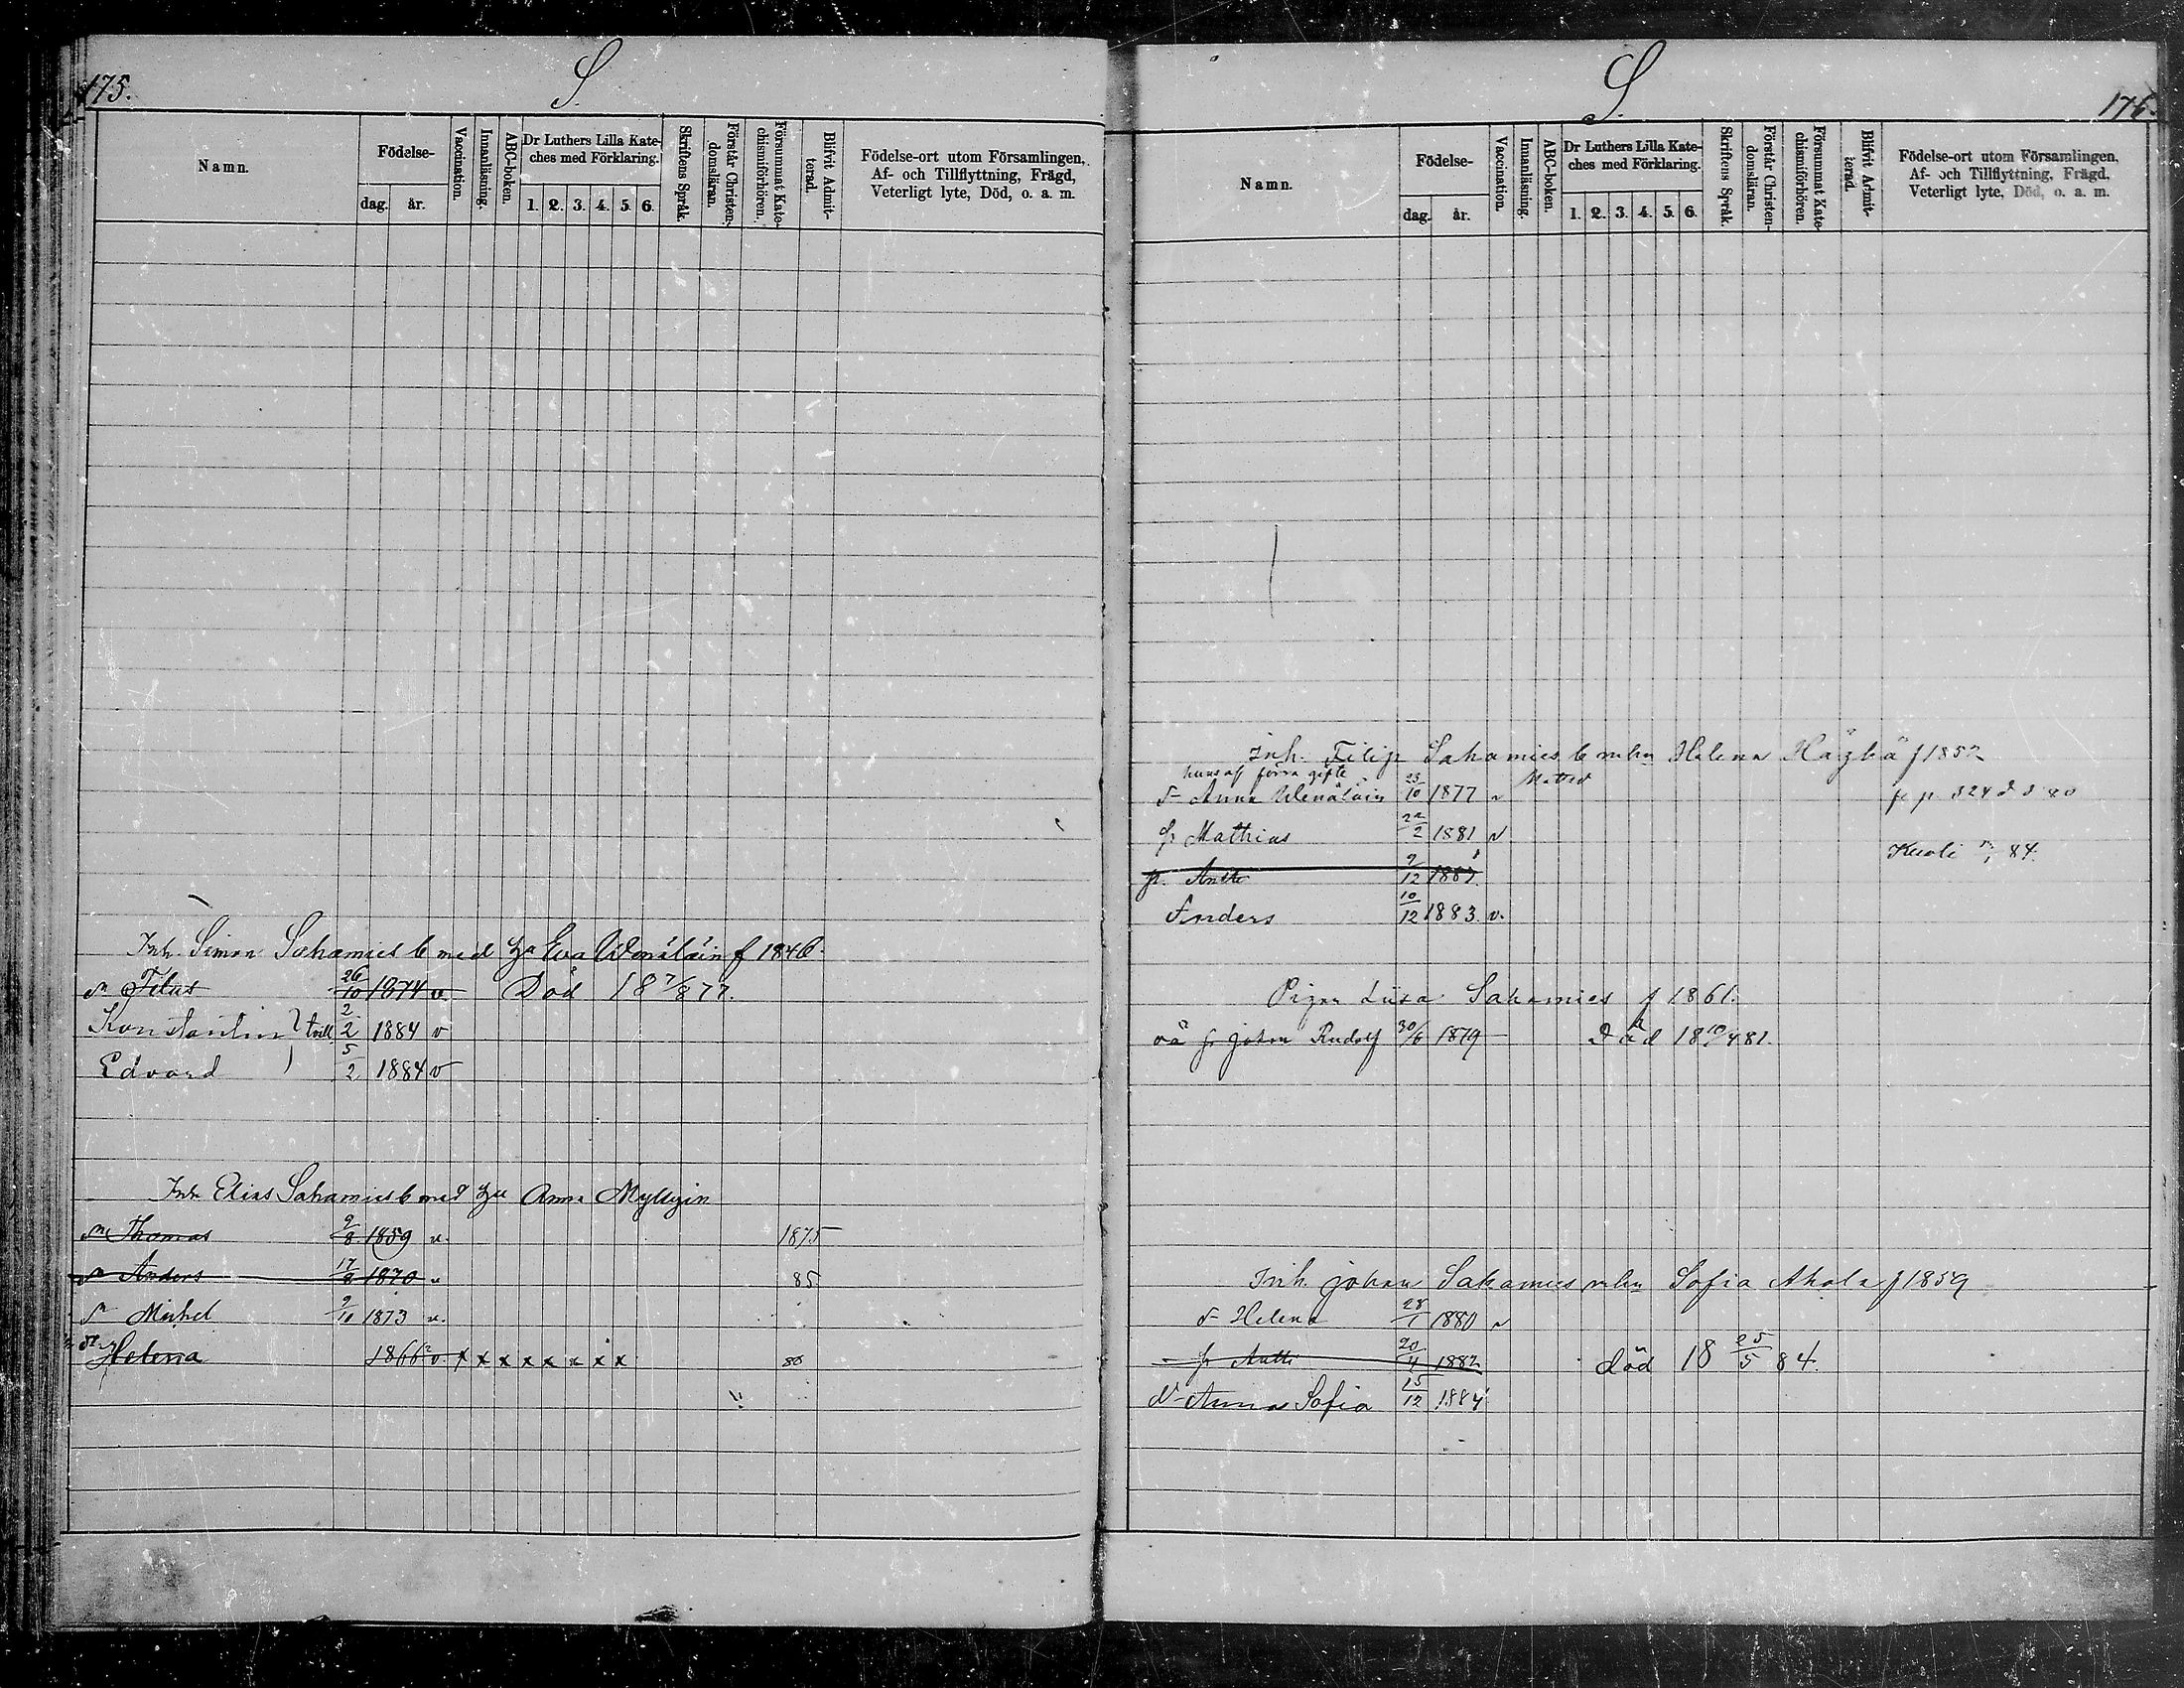 175.
S.
Namn.
Födelse-
dag. år.
Vaccination.
Innanläsning.
ABC-boken.
Dr Luthers Lilla Kate-
ches med Förklaring.
1. 2. 3. 4. 5. 6.
Skriftens Språk.
Förstår Christen-
domsläran.
Försummat Kate-
chismiförhören.
Blifvit Admit-
terad.
Födelse-ort utom Församlingen,
Af- och Tillflyttning, Frägd,
Veterligt lyte, Död, o. a. m.
Inh. Simon Sahamies b med Eva f 1846.
Titus 26/10 1874 v Död 18 7/8 77.
Konstantin tvill. 2/2 1884 v
Edvard 5/2 1884 v
Inh Elias Sahamies b med Anna Myllyin
Thomas 9/8 1859 v. 1875
Anders 17/8 1870 v 85
Michel 9/10 1873 v.
Helena 1866 v. x x x x x x x x 80
S.
176.
Namn.
Födelse-
dag. år.
Vaccination.
Innanläsning.
ABC-boken.
Dr Luthers Lilla Kate-
ches med Förklaring.
1. 2. 3. 4. 5. 6.
Skriftens Språk.
Förstår Christen-
domsläran.
Försummat Kate-
chismiförhören.
Blifvit Admit-
terad.
Födelse-ort utom Församlingen,
Af- och Tillflyttning, Frägd,
Veterligt lyte, Död, o. a. m.
Inh. Filip Sahamies b Helena f 1852
hans af förra gifte
Anna 23/10 1877 v 324
Mathias 22/2 1881 v
Antti 9/12 Kuoli 84.
Anders 10/12 1883. v.
Pigan Liisa Sahamies f 1861.
oä Johan Rudolf 30/6 1879 Död 18 10/4 81.
Inh. Johan Sahamies Sofia Ahola f 1859
Helena 28/1 1880 v
Antti 20/4 1882 död 18 25/5 84.
Anna Sofia 15/12 1884